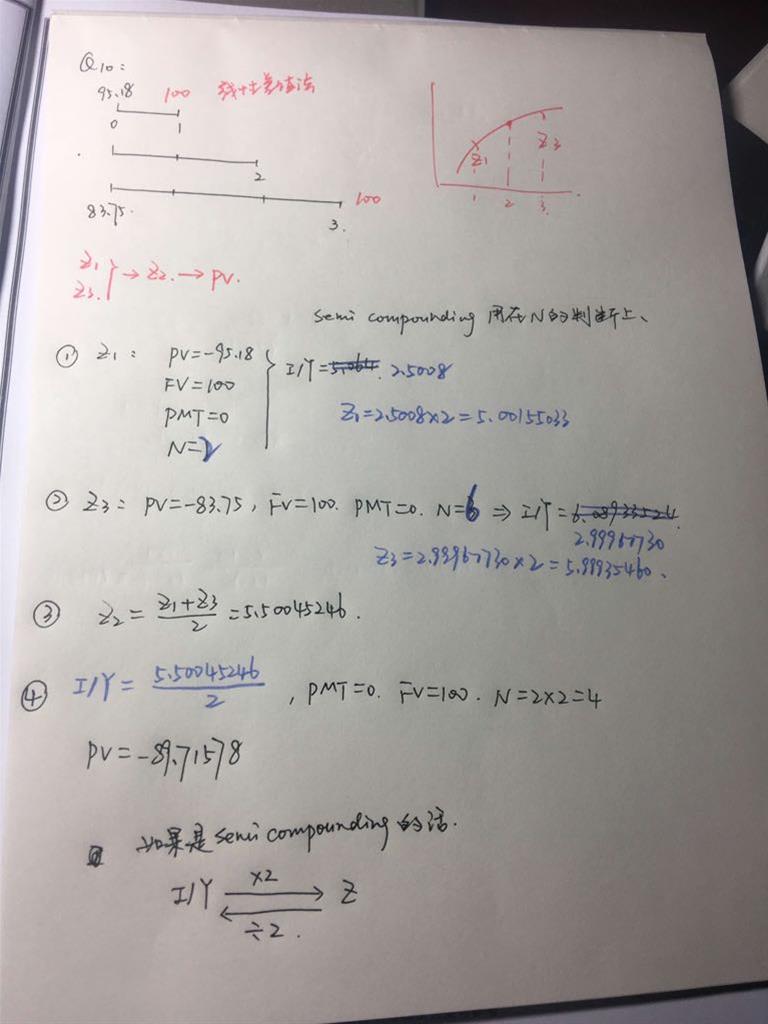 Q10:
95.18 100 线性差值法
0 1
2
83.75. 100
3.
Z1 Z3
1 2 3.
Z1
Z3. } → Z2. → PV.
semi compounding 用在N的判断上、
① Z1: PV=-95.18
FV=100
PMT=0
N=2
I/Y=5.064. 2.5008
Z1=2.5008×2=5.00155033
② Z3: PV=-83.75, FV=100. PMT=0. N=6 ⇒ I/Y=6.089335264.
2.99967730
Z3=2.99967730×2=5.99935460、
③ Z2 = (Z1+Z3)/2 = 5.50045246.
④ I/Y = 5.50045246/2, PMT=0. FV=100. N=2×2=4
PV=-89.71578
如果是semi compounding的话.
×2
I/Y ⇄ Z
÷2.